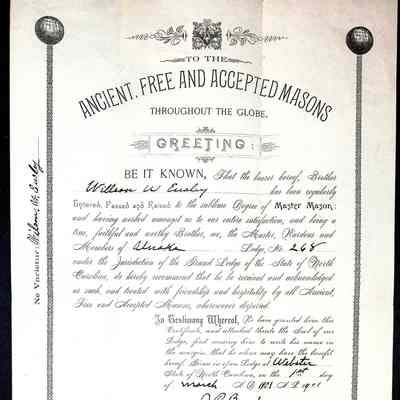 TO THE
ANCIENT, FREE AND ACCEPTED MASONS
THROUGHOUT THE GLOBE,
GREETING:
BE IT KNOWN, That the bearer hereof, Brother
William W Ensley has been regularly
Entered, Passed and Raised to the sublime Degree of Master Mason;
and having worked amongst us to our entire satisfaction, and being a
true, faithful and worthy Brother, we, the Master, Wardens and
Members of Unaka Lodge, No. 268
under the Jurisdiction of the Grand Lodge of the State of North
Carolina, do hereby recommend that he be received and acknowledged
as such, and treated with friendship and hospitality by all Ancient,
Free and Accepted Masons, wheresoever dispersed.
In Testimony Whereof, We have granted him this
Certificate, and attached thereto the Seal of our
Lodge, first causing him to write his name in
the margin, that he alone may have the benefit
hereof. Given in open Lodge at Webster
State of North Carolina, on the 1st day
of march A.D. 1901
Ne Varietur